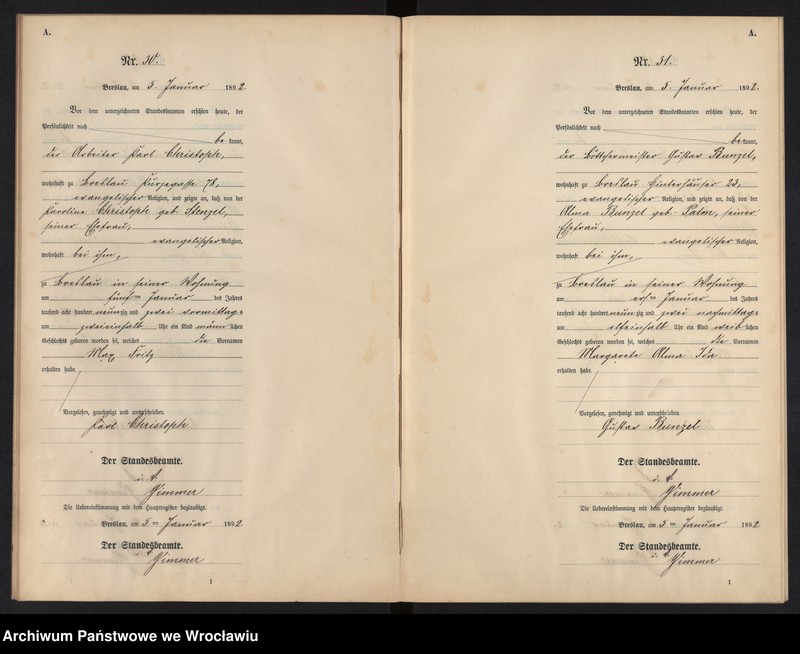 A.
Nr. 30.
Breslau, am 5. Januar 1892.
Vor dem unterzeichneten Standesbeamten erschien heute, der
Persönlichkeit nach
bekannt,
der Arbeiter Karl Christoph,
wohnhaft zu Breslau 78,
evangelischer Religion, und zeigte an, daß von der
Karoline Christoph geb. Stenzel,
seiner Ehefrau,
evangelischer Religion,
wohnhaft bei ihm,
zu Breslau in seiner Wohnung
am fünften Januar des Jahres
tausend acht hundert neunzig und zwei vormittags
um zweieinhalb Uhr ein Kind männlichen
Geschlechts geboren worden sei, welches die Vornamen
Max Fritz
erhalten habe.
Vorgelesen, genehmigt und unterschrieben.
Karl Christoph
Der Standesbeamte.
Die Uebereinstimmung mit dem Hauptregister beglaubigt.
Breslau, am 5ten Januar 1892
Der Standesbeamte.
1
A.
Nr. 31.
Breslau, am 5. Januar 1892.
Vor dem unterzeichneten Standesbeamten erschien heute, der
Persönlichkeit nach
bekannt,
der Böttchermeister Gustav Bunzel,
wohnhaft zu Breslau Hinterhäuser 23,
evangelischer Religion, und zeigte an, daß von der
Alma Bunzel geb. Palm, seiner
Ehefrau,
evangelischer Religion,
wohnhaft bei ihm,
zu Breslau in seiner Wohnung
am ersten Januar des Jahres
tausend acht hundert neunzig und zwei nachmittags
um elfeinhalb Uhr ein Kind weiblichen
Geschlechts geboren worden sei, welches die Vornamen
Margarete Alma Ida
erhalten habe.
Vorgelesen, genehmigt und unterschrieben.
Gustav Bunzel
Der Standesbeamte.
Die Uebereinstimmung mit dem Hauptregister beglaubigt.
Breslau, am 5ten Januar 1892
Der Standesbeamte.
1
Archiwum Państwowe we Wrocławiu